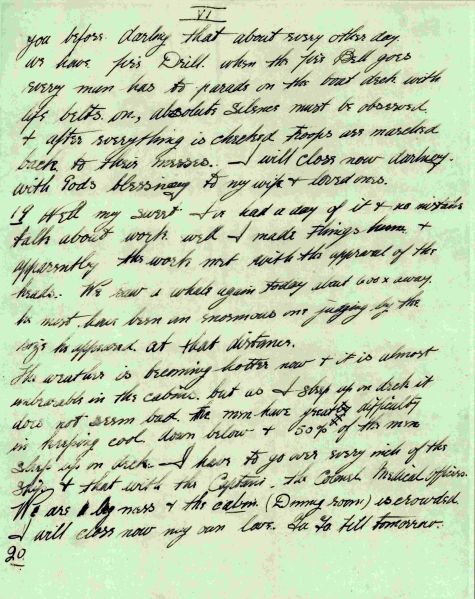 VI
you before darling that about every other day
we have fire Drill. when the fire Bell goes
every man has to parade on the boat deck with
life belts on, absolute silence must be observed
& after everything is checked troops are marched
back to their messes. - I will close now darling.
with Gods blessing to my wife & loved ones.
19 Well my sweet I've had a day of it & no mistake
talk about work well I made things hum &
apparently the work met with the approval of the
heads. We saw a whale again today about 600x away.
he must have been an enormous one judging by the
size he appeared at that distance.
The weather is becoming hotter now & it is almost
unbearable in the cabins but as I sleep up on deck it
does not seem bad the men have great difficulty
in keeping cool down below & 50% of the men
sleep up on deck. - I have to go over every inch of the
ship & that with the Captain, the Colonel Medical Officer.
We are a big mess & the cabin (Dining room) is crowded
I will close now my own love. Ta Ta till tomorrow.
20